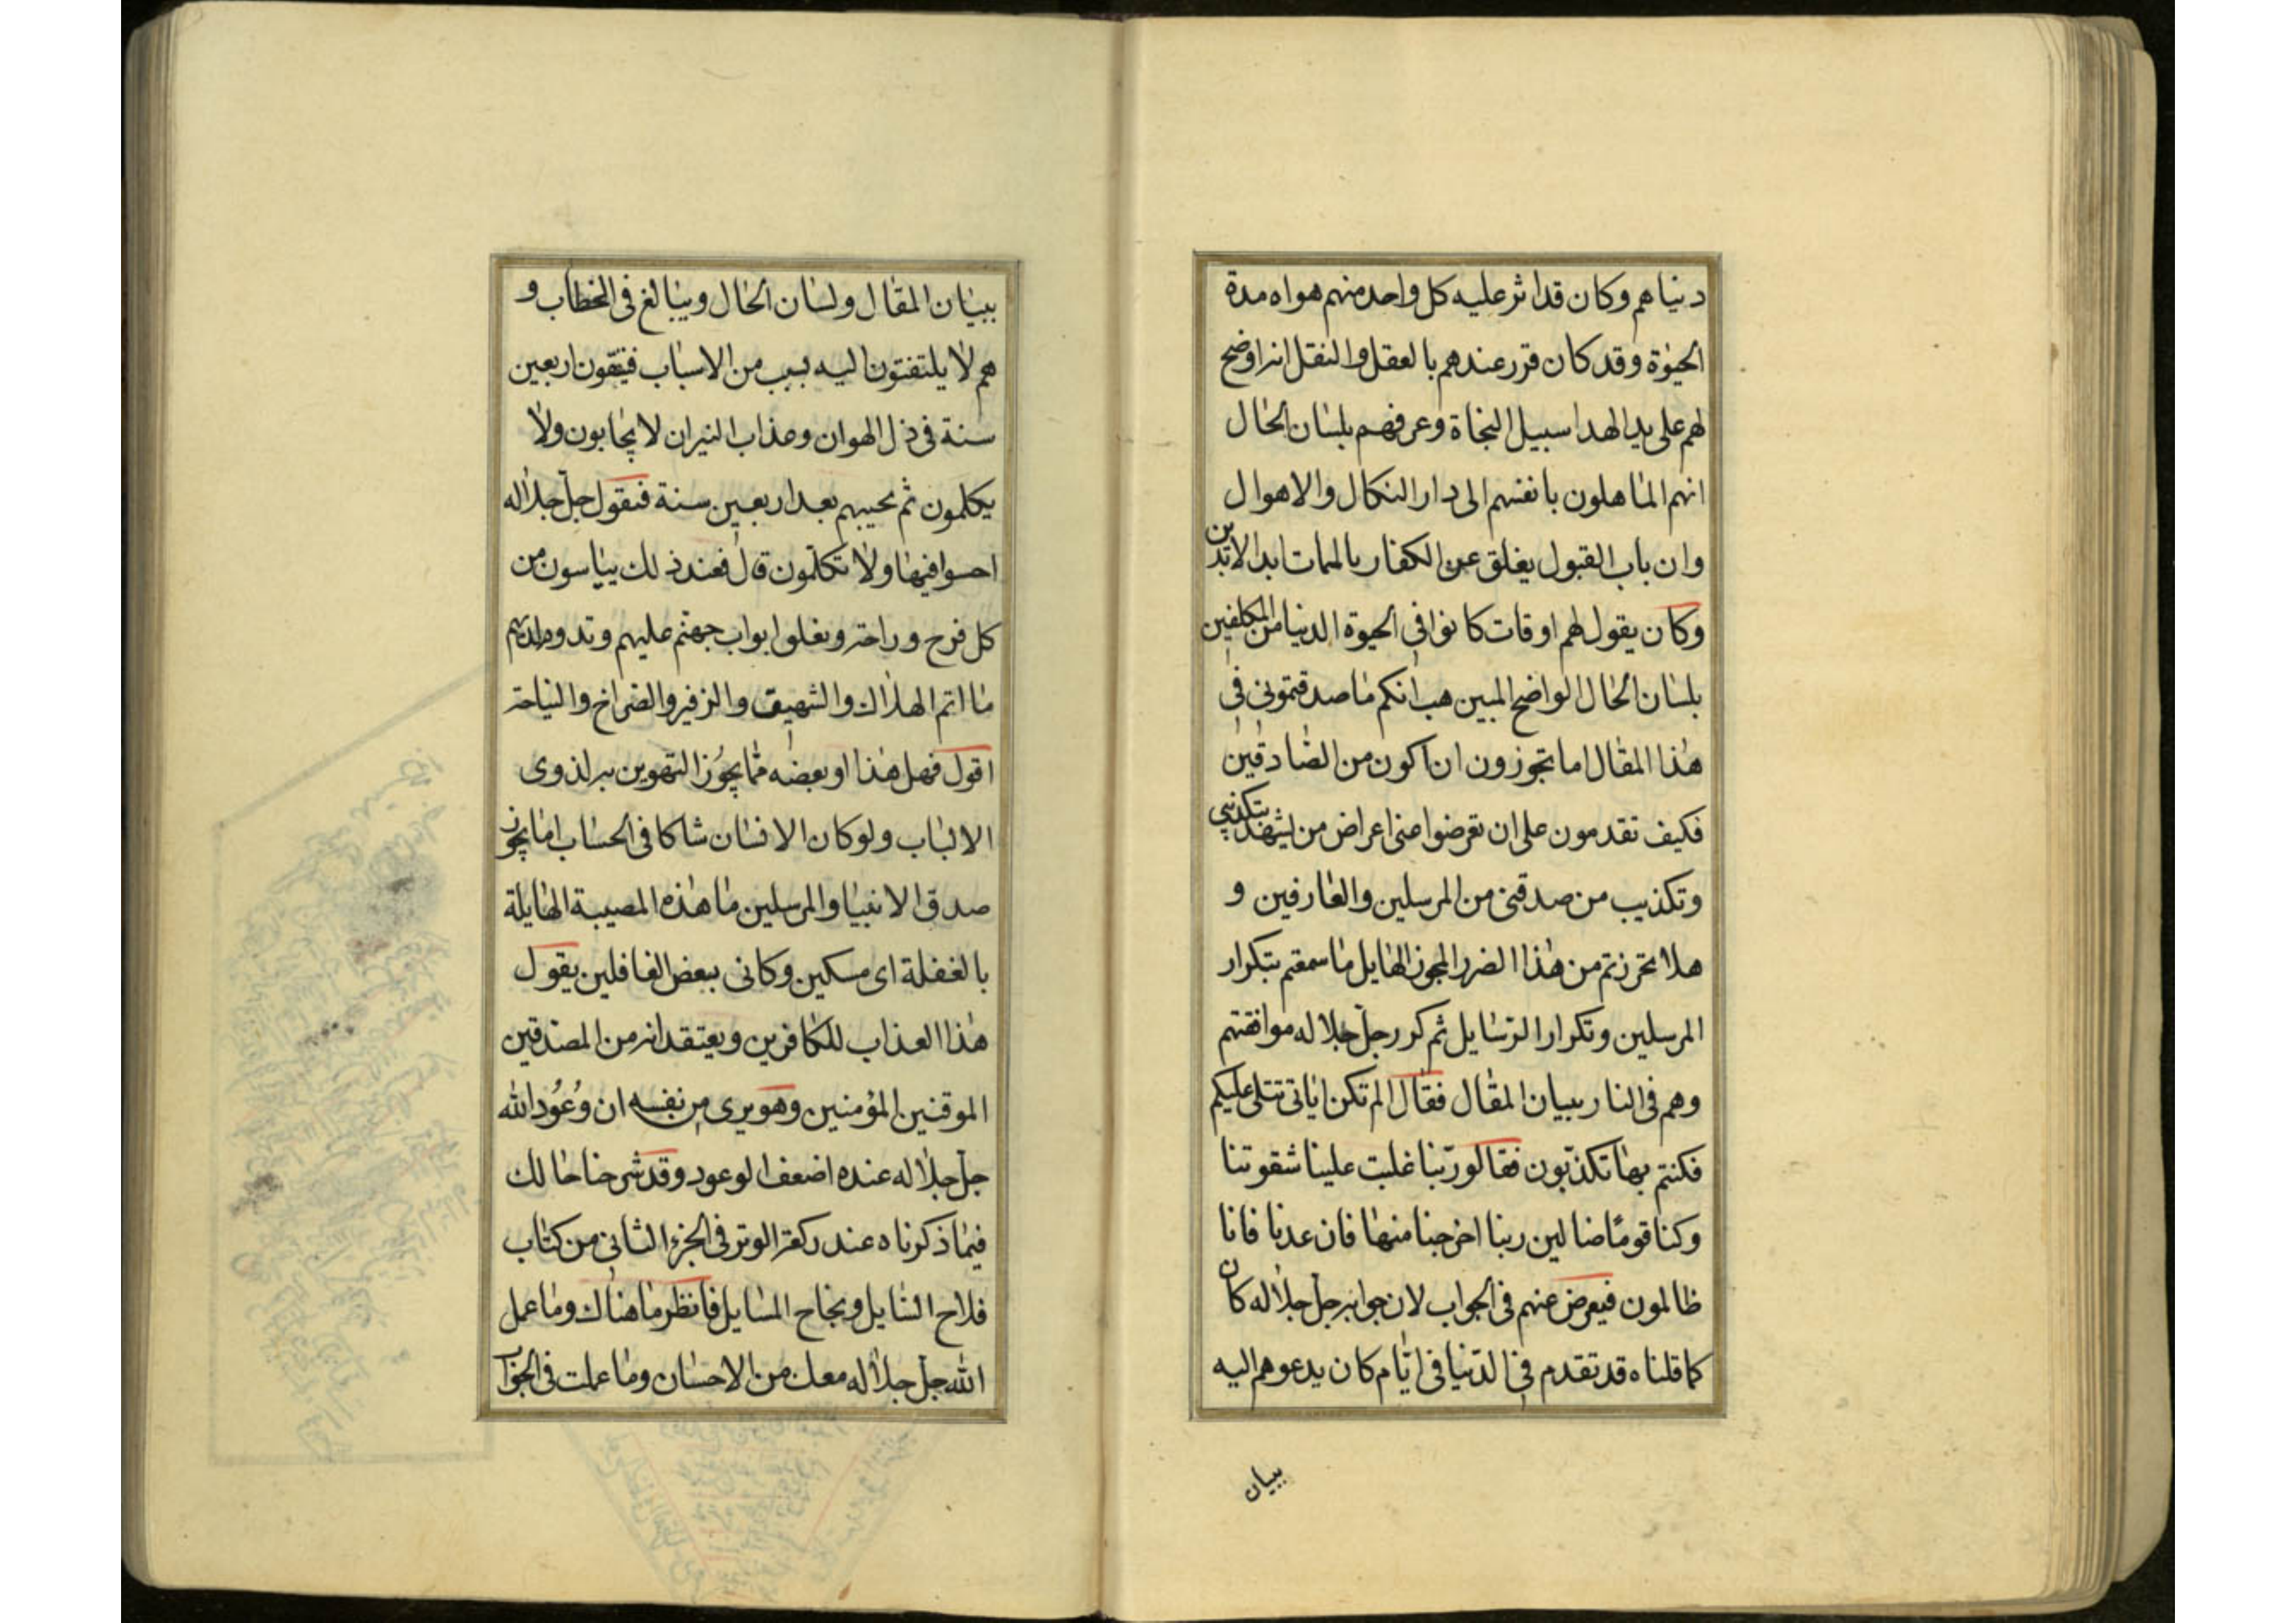 دنياهم وكان قد اثر عليه كل واحد منهم هواه مدة
الحيوة وقد كان قرر عندهم بالعقل والنقل انه اوضح
لهم على يد الهداة سبيل النجاة وعرفهم بلسان الحال
انهم الماهلون بانفسهم الى دار النكال والاهوال
وان باب القبول يغلق عن الكفار بالممات ابد الابدين
وكان يقول لهم اوقات كانوا فى الحيوة الدنيا من المكلفين
بلسان الحال الواضح المبين هب انكم ما صدقتمونى فى
هذا المقال اما تجوزون ان اكون من الصادقين
فكيف تقدمون على ان تعرضوا عنى اعراض من يشهد بتكذيبى
وتكذيب من صدقنى من المرسلين والعارفين و
هلا تحرزتم من هذا الضرر المجوز الهايل ما سمعتم بتكرار
المرسلين وتكرار الرسايل ثم كرر جل جلاله مواقفتهم
وهم فى النار ببيان المقال فقال الم تكن اياتى تتلى عليكم
فكنتم بها تكذبون فقالو ربنا غلبت علينا شقوتنا
وكنا قوما ضالين ربنا اخرجنا منها فان عدنا فانا
ظالمون فيعرض عنهم فى الجواب لان جوابه جل جلاله كان
كما قلناه قد تقدم فى الدنيا فى ايام كان يدعوهم اليه
ببيان
ببيان المقال ولسان الحال ويبالغ فى الخطاب و
هم لا يلتفتون اليه بسبب من الاسباب فيبقون اربعين
سنة فى ذل الهوان وعذاب النيران لا يجابون ولا
يكلمون ثم يحيبهم بعد اربعين سنة فيقول جل جلاله
احسوا فيها ولا تكلمون قال فعند ذلك يياسون من
كل فرح وراحة وتغلق ابواب جهنم عليهم وتدوم لديهم
ماتم الهلاك والشهيق والزفير والصراخ والنياحة
اقول فهل هذا او بعضه مما يجوز التهوين به لذوى
الالباب ولو كان الانسان شاكا فى الحساب اما يجوز
صدق الانبيا والمرسلين ما هذه المصيبة الهايلة
بالغفلة اى مسكين وكانى ببعض الغافلين يقول
هذا العذاب للكافرين ويعتقد انه من المصدقين
الموقنين المؤمنين وهو يرى من نفسه ان وعود الله
جل جلاله عنده اضعف الوعود وقد شرحنا حالك
فيما ذكرناه عند ركعة الوتر فى الجزء الثانى من كتاب
فلاح السايل ونجاح المسايل فانظر ما هناك وما عمل
الله جل جلاله معك من الاحسان وما عملت فى الجواب